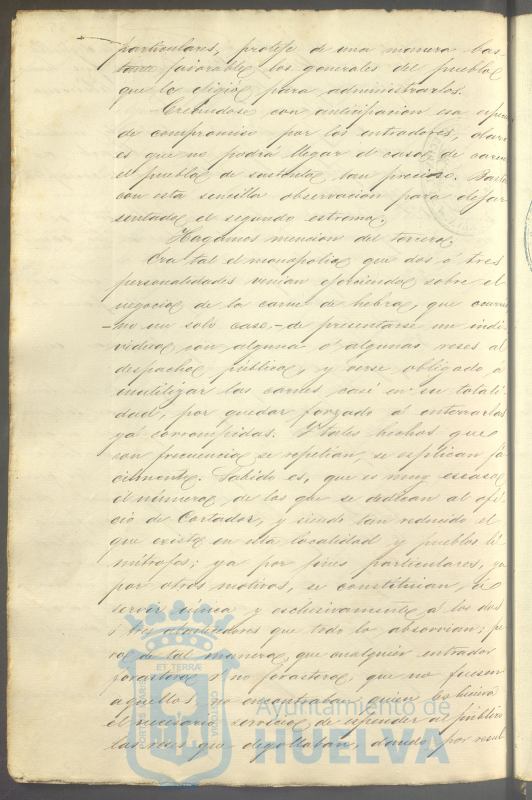 particulares, protege de una manera bas
tante favorable los generales del pueblo
que lo eligió para administrarlos.
Creándose con anticipacion esa especie
de compromiso por los entradores, claro
es que no podrá llegar el caso de carecer
el pueblo de sustento tan preciso. Basta
con esta sencilla observacion para dejar
sentado el segundo estremo.
Hagamos mencion del tercero.
Era tal el monopolio que dos ó tres
personalidades venian ejerciendo sobre el
negocio de la carne de hebra, que ocurrió
-no un solo caso,- de presentarse un indi-
viduo con alguna ó algunas reses al
despacho público, y verse obligado á
inutilizar las carnes casi en su totali-
dad, por quedar forzado á enterrarlas
ya corrompidas. Y tales hechos que
con frecuencia se repetian, se esplican fá
cilmente. Sabido es, que es muy escaso
el número de los que se dedican al ofi-
cio de Cortador, y siendo tan reducido el
que existe en esta localidad y pueblos li
mítrofes; ya por fines particulares, ya
por otros motivos, se constituian, á
servir única y esclusivamente á los dos
ó tres abastecedores que todo lo absorvian; pe
ro de tal manera, que cualquier entrador
forastero ó no forastero, que no fuesen
aquellos no encontraban quien les hiciera
el necesario servicio de espender al público
las reses que degollaban, dando por resul
ET TERRÆ
Ayuntamiento de
HUELVA